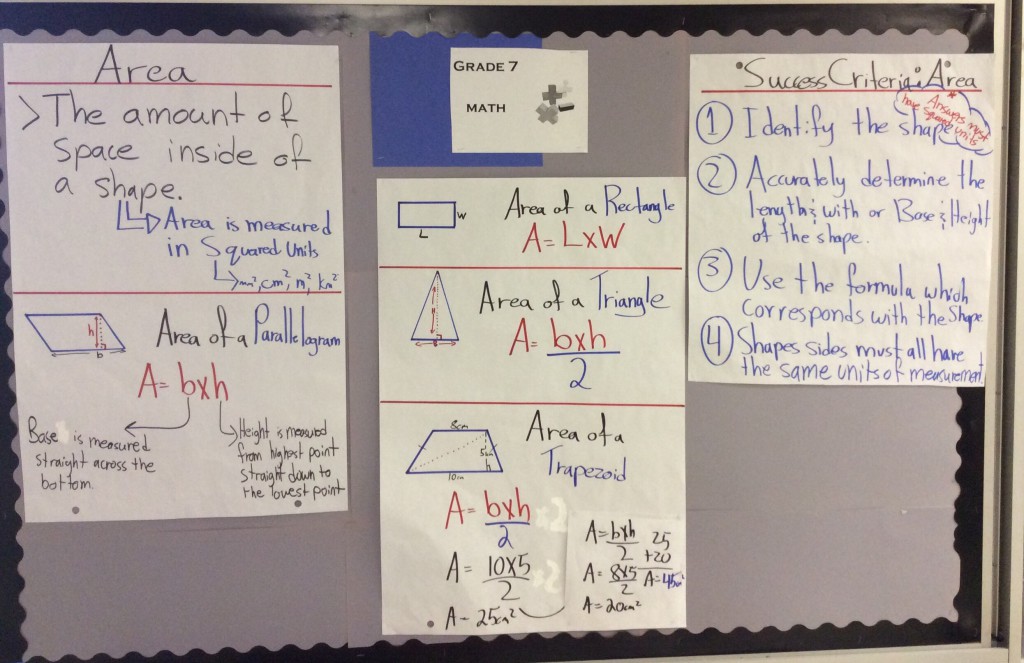 Area
> The amount of
space inside of
a shape.
Area is measured
in Squared Units
mm², cm², m², km²
h
b
Area of a Parallelogram
A= bxh
Base is measured
straight across the
bottom
Height is measured
from highest point
straight down to
the lowest point
GRADE 7
MATH
W
L
Area of a Rectangle
A= LxW
Area of a Triangle
A= bxh
2
8cm
5cm
h
10cm
Area of a
Trapezoid
A= bxh
2
A= 10x5
2
A= 25cm²
A= bxh
2
A= 8x5
2
A= 20cm²
25
+20
A=45cm²
Success Criteria: Area
* Answers must
have squared units
1 Identify the shape
2 Accurately determine the
length & with or Base & Height
of the shape.
3 Use the formula which
corresponds with the shape
4 Shapes sides must all have
the same units of measurement.